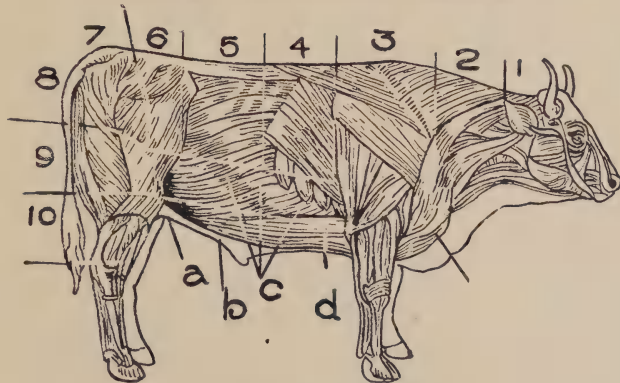 7 6 5 4 3 2 1
8
9
10
a b c d